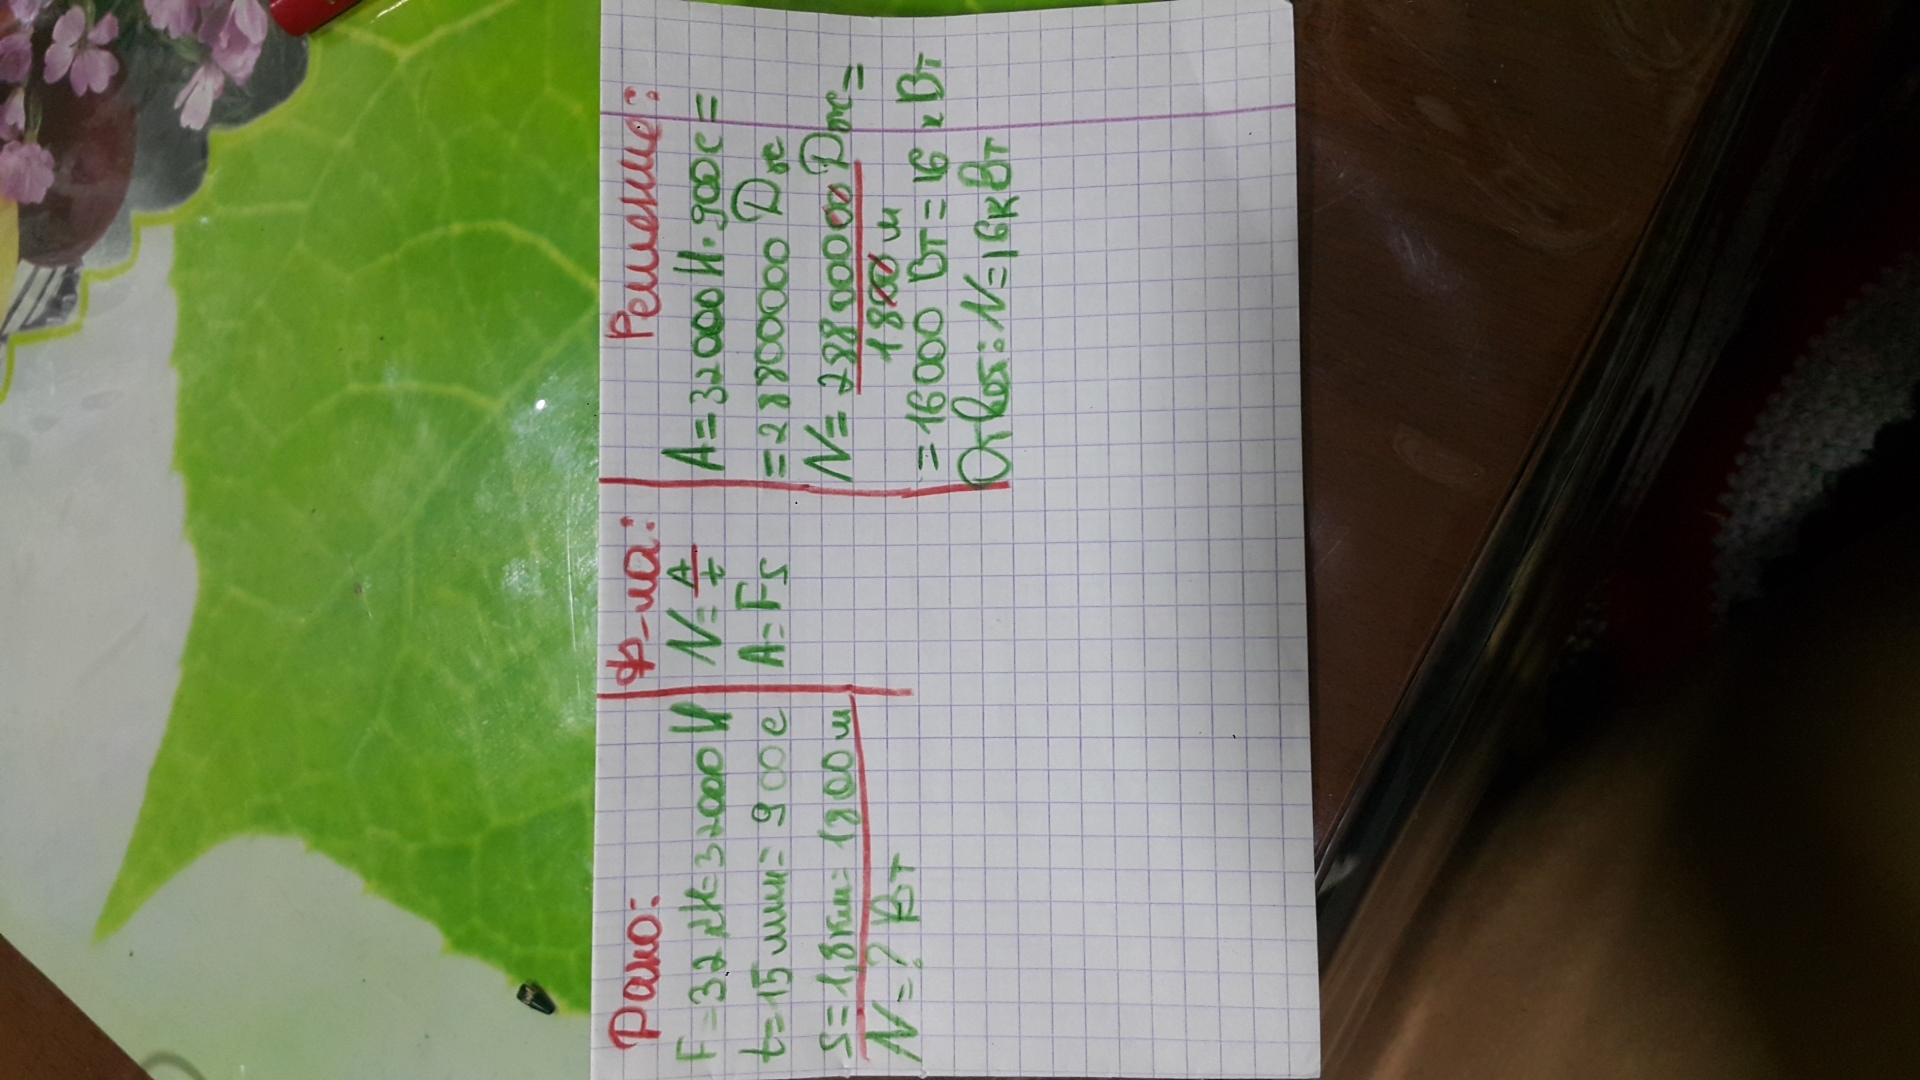 Дано:
F=32кН=32000Н
t=15мин=900с
S=1,8км=1800м
N=? Вт
Ф-ла:
N=A/t
A=Fs
Решение:
A=32000Н·900с=
=28800000 Дж
N=28800000Дж=
1800м
=16000 Вт=16 кВт
Ответ: N=16кВт